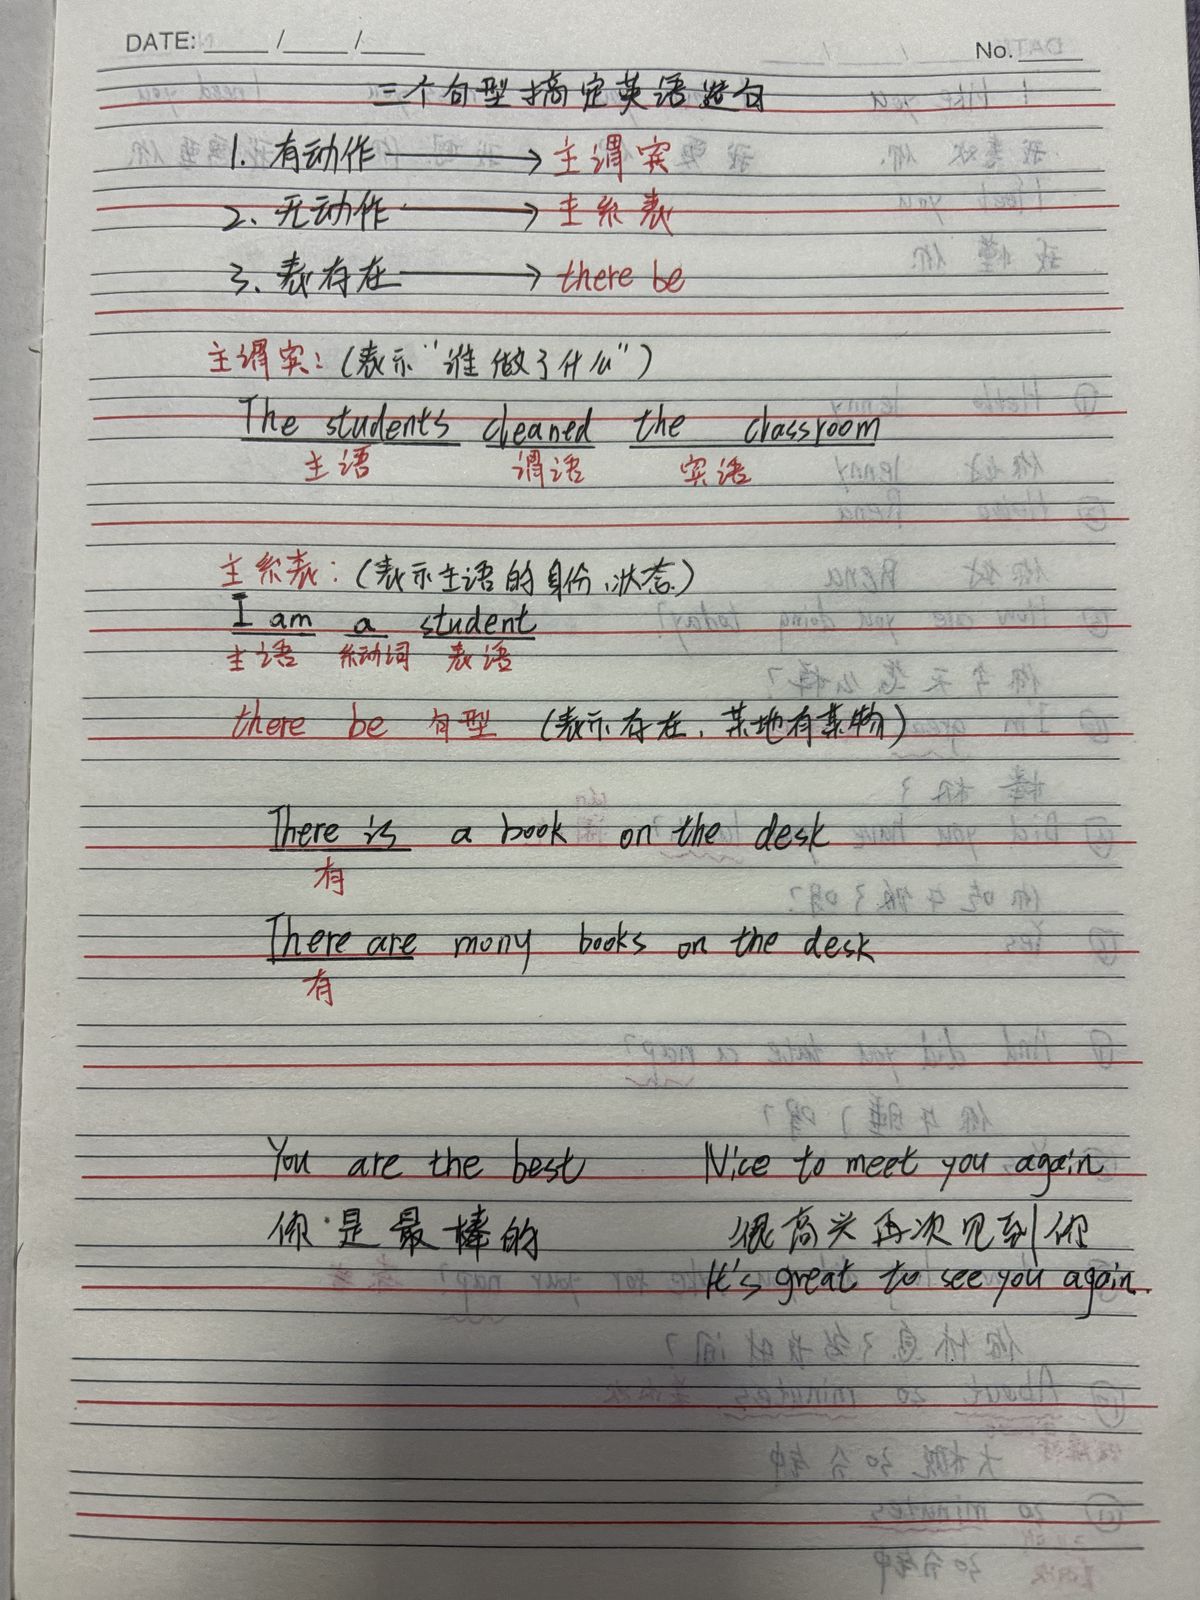 DATE: ____ / ____ / ____ No. ____
三个句型搞定英语造句
1. 有动作 → 主谓宾
2. 无动作 → 主系表
3. 表存在 → there be
主谓宾：（表示“谁做了什么”）
The students cleaned the classroom
主语 谓语 宾语
主系表：（表示主语的身份、状态）
I am a student
主语 系动词 表语
there be 句型 （表示存在、某地有某物）
There is a book on the desk
有
There are many books on the desk
有
You are the best Nice to meet you again
你是最棒的 很高兴再次见到你
It's great to see you again.